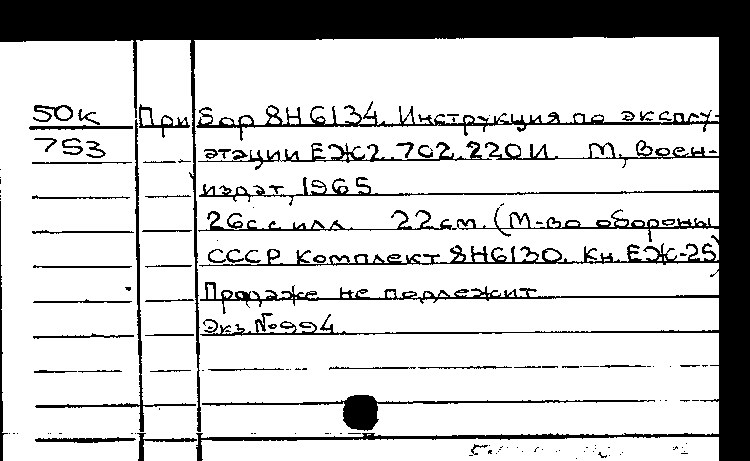 50к Прибор 8Н6134. Инструкция по эксплу-
753 атации ЕЖ2.702.220И. М., Воен-
издат, 1965.
26с с илл. 22см. (М-во обороны
СССР Комплект 8Н6130. Кн. ЕЖ-25)
Продаже не подлежит
Экз. №994.